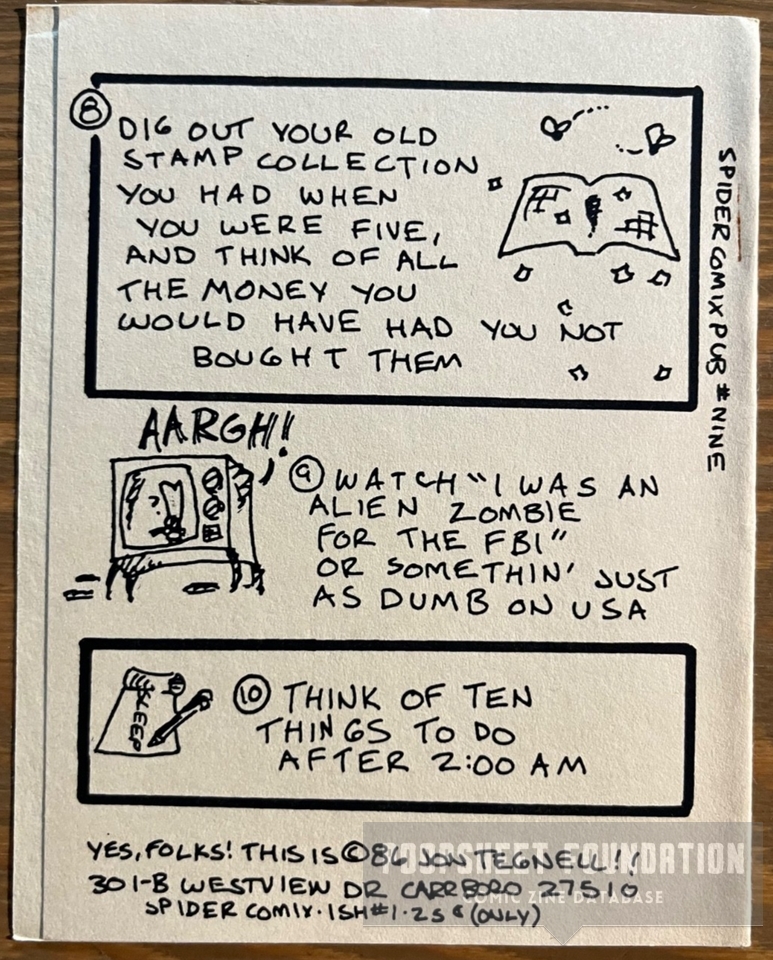 8
DIG OUT YOUR OLD
STAMP COLLECTION
YOU HAD WHEN
YOU WERE FIVE,
AND THINK OF ALL
THE MONEY YOU
WOULD HAVE HAD YOU NOT
BOUGHT THEM
SPIDER COMIX PUB #NINE
AARGH!
9 WATCH "I WAS AN
ALIEN ZOMBIE
FOR THE FBI"
OR SOMETHIN' JUST
AS DUMB ON USA
SLEEP
10 THINK OF TEN
THINGS TO DO
AFTER 2:00 AM
YES, FOLKS! THIS IS © 86 JON TEGNELL!!
301-B WESTVIEW DR CARRBORO 27510
SPIDER COMIX · ISH #1 · 25¢ (ONLY)
POOPSHEET FOUNDATION
COMIC ZINE DATABASE